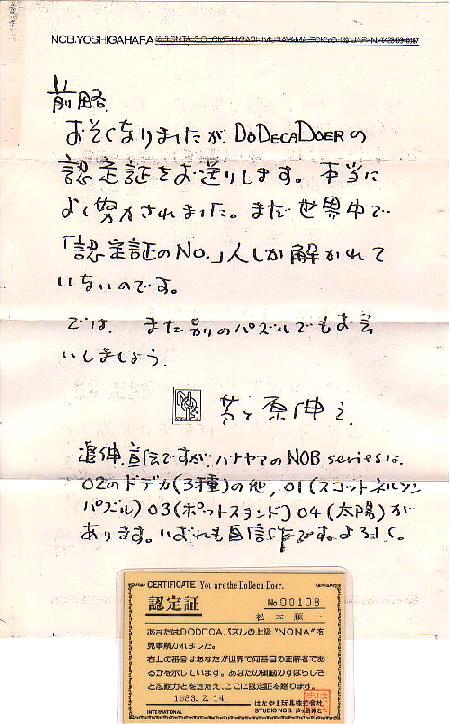 NOB.YOSHIGAHARA
前略
おそくなりましたが DODECADOERの
認定証をお送りします。本当に
よく努力されました。まだ世界中で
「認定証のNo.」人しか解かれて
いないのです。
では、また別のパズルでもお会
いしましょう。
芦ヶ原伸之
追伸 宣伝ですが、ハナヤマのNOB seriesは、
02のドデカ(3種)の他、01(スコットネルソン
パズル) 03(ホットスタンド) 04(太陽)が
あります。いずれも自信作です。よろしく。
CERTIFICATE You are the DoDeca Doer.
認定証
No 00108
松本順一
あなたはDODECAパズルの上級"NONA"を
見事解かれました。
右上の番号はあなたが世界で何番目の正解者であ
るかを示しています。あなたの頭脳のすばらしさ
ここに認定証を贈ります。
1983.2.14
はなやま玩具株式会社
INTERNATIONAL
STUDIO NOB